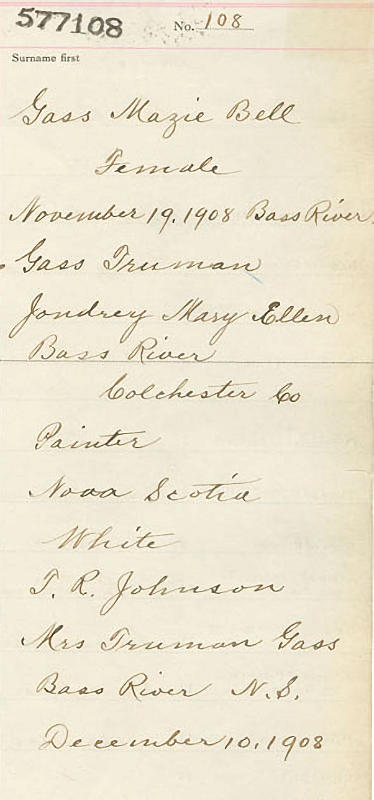 577108
No. 108
Surname first
Gass Mazie Bell
Female
November 19, 1908 Bass River
Gass Truman
Jondrey Mary Ellen
Bass River
Colchester Co
Painter
Nova Scotia
White
T. R. Johnson
Mrs Truman Gass
Bass River N.S.
December 10, 1908